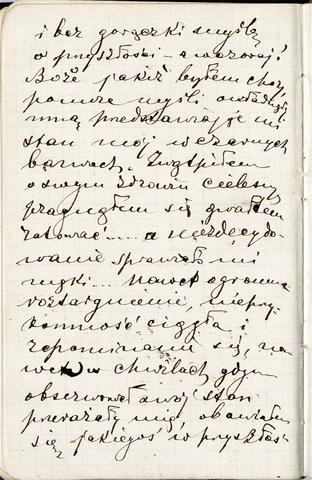 i bez gorączki myślę
o przyszłości - a wczoraj!
Boże jakiż byłem chory
ponure myśli owładnęły
mną przedstawiając mi
stan mój w czarnych
barwach. Zwątpiłem
o swym zdrowiu cielesnym
pragnąłem się gwałtem
ratować.... a niezdecydo-
wanie sprawiało mi
męki... nawet ogromne
roztargnienie, nieprzy-
tomność ciągła i
zapominanie się, na-
wet w chwilach gdym
obserwował swój stan
przerażały mię, obawiałem
się jakiegoś w przyszłoś-